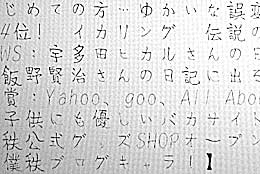 じめての方…ゆかいな誤変
4位! イカリング 伝説の
WS:宇多田ヒカルさんの日
飯野賢治さんの日記に出る
賞:Yahoo、goo、All Abo
子供にも優しいバカナイト
秩公式グッズSHOPオープン
僕秩ブログキャラー!